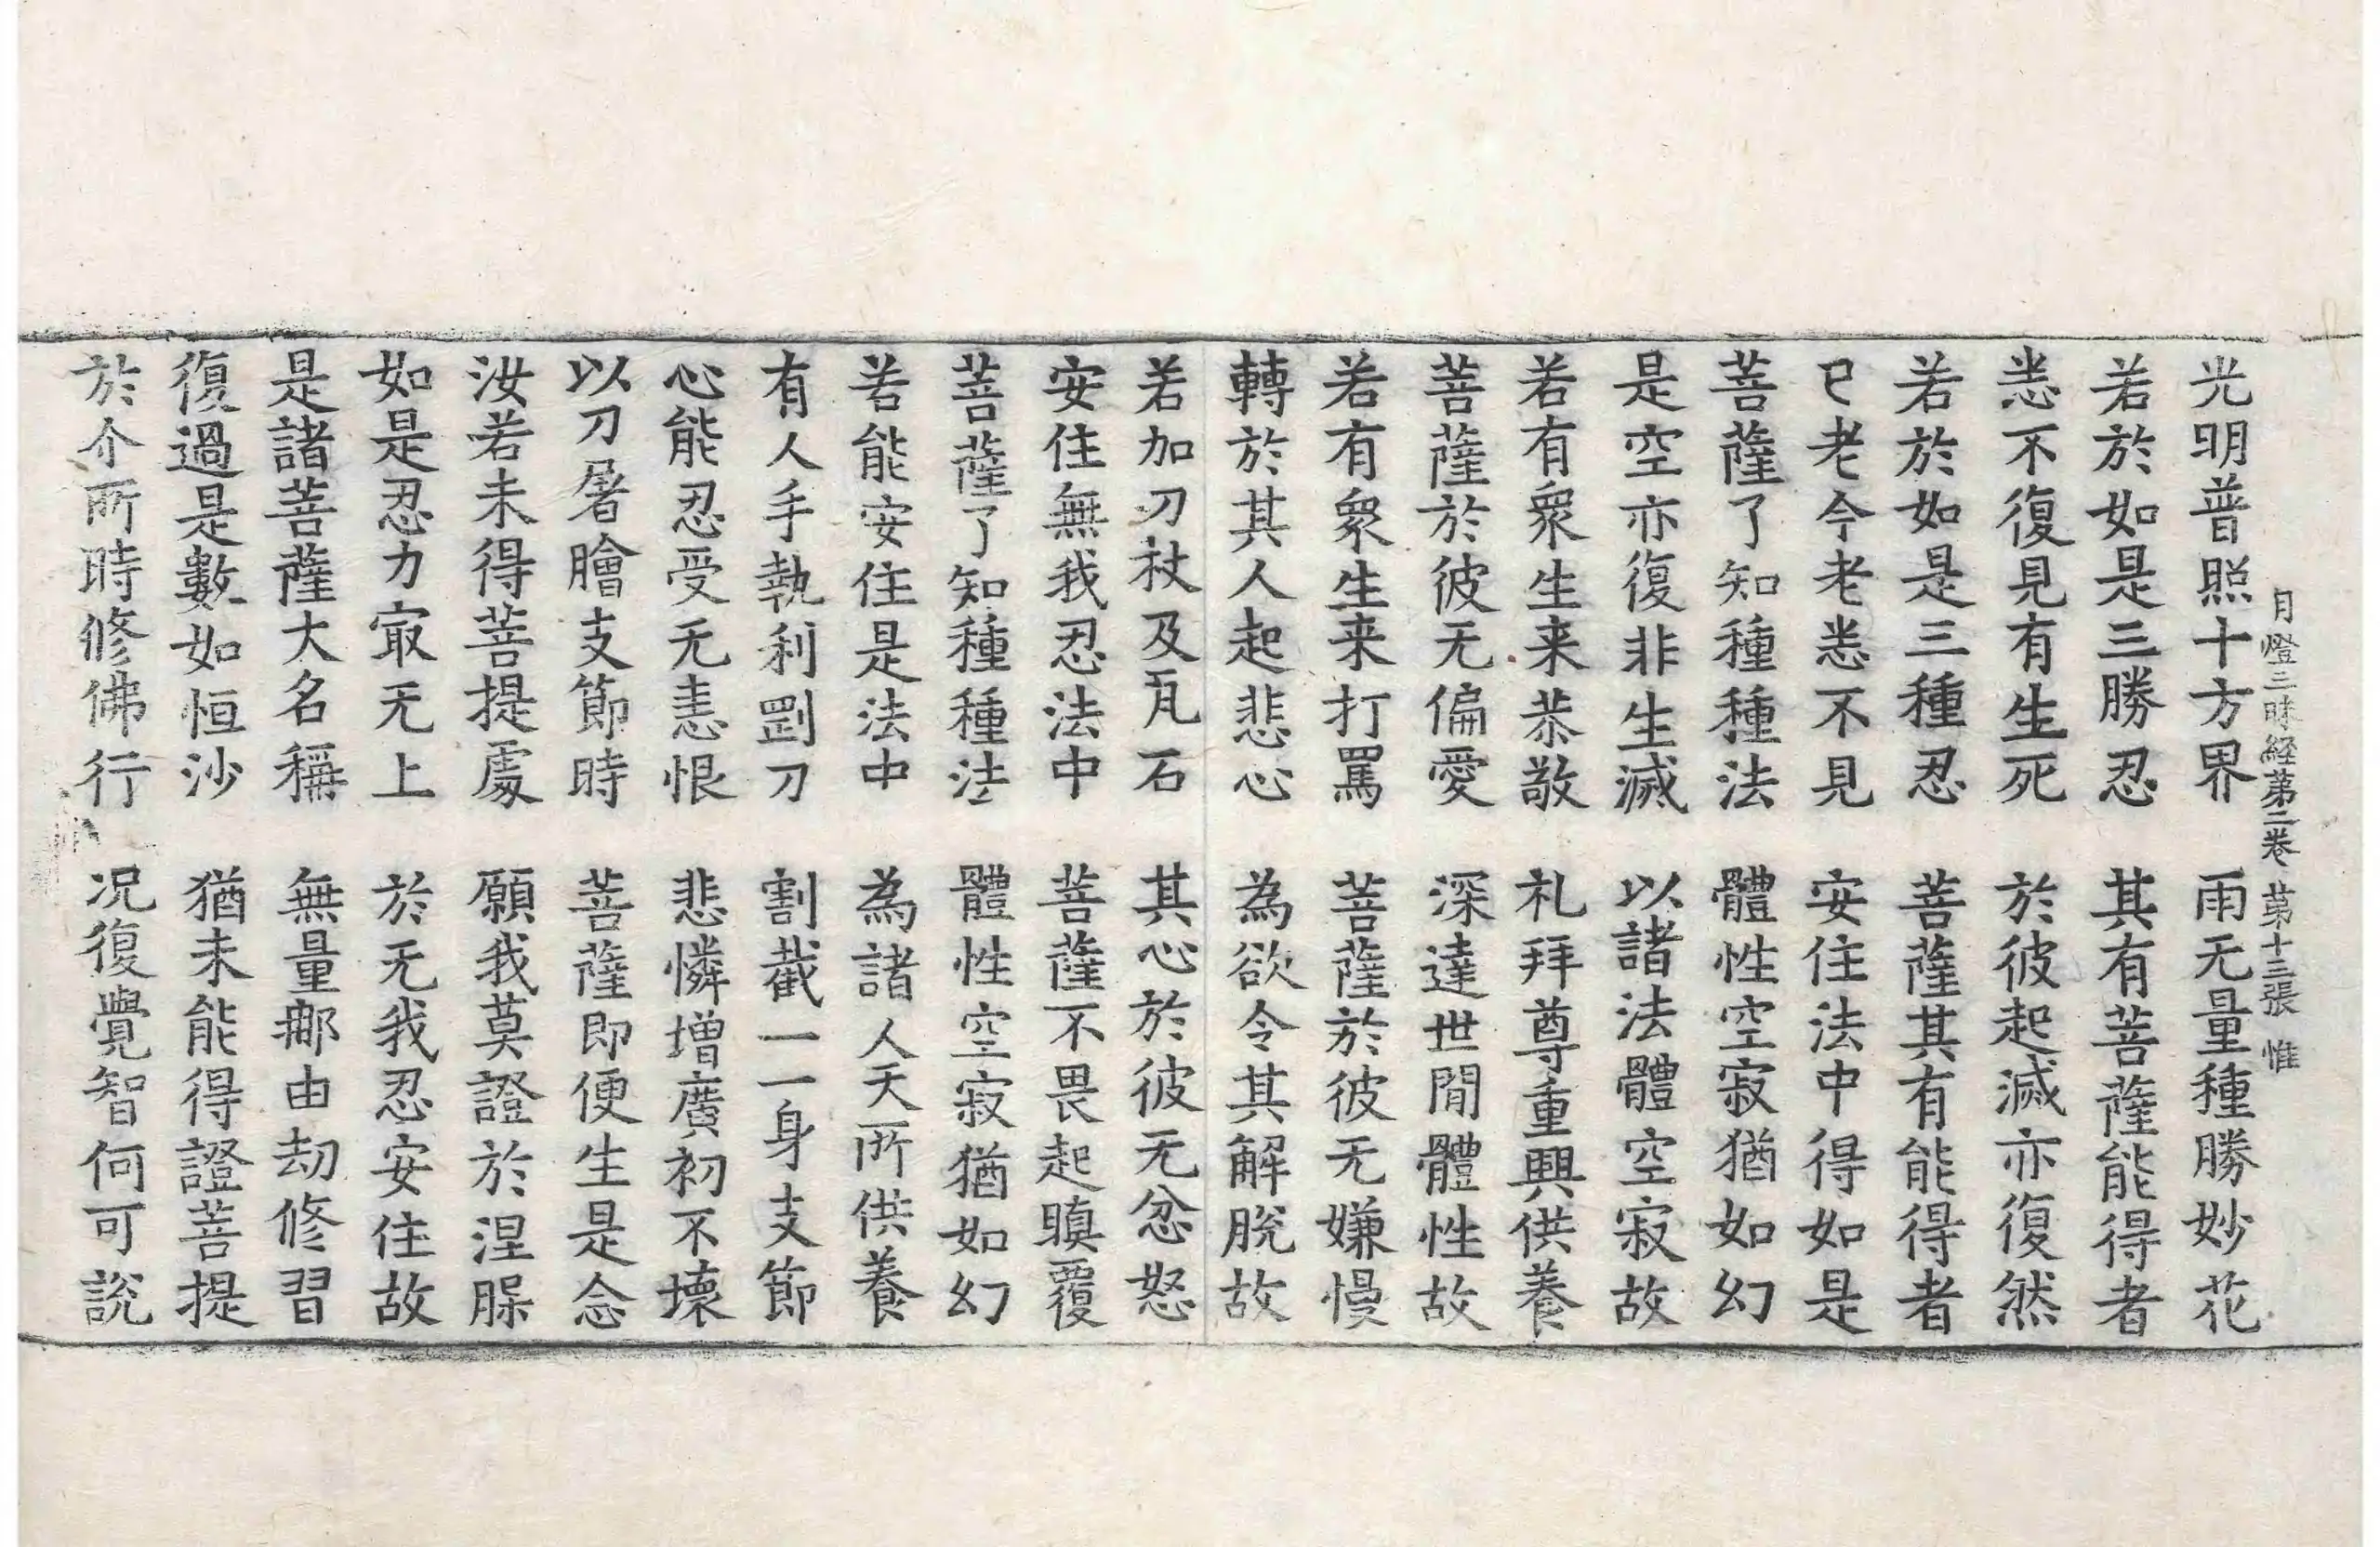 月燈三昧経第二卷 第十三張 惟
光明普照十方界 雨无量種勝妙花
若於如是三勝忍 其有菩薩能得者
悉不復見有生死 於彼起滅亦復然
若於如是三種忍 菩薩其有能得者
已老今老悉不見 安住法中得如是
菩薩了知種種法 體性空寂猶如幻
是空亦復非生滅 以諸法體空寂故
若有衆生来恭敬 礼拜尊重興供養
菩薩於彼无偏愛 深達世間體性故
若有衆生来打罵 菩薩於彼无嫌慢
轉於其人起悲心 為欲令其解脫故
若加刀杖及瓦石 其心於彼无忿怒
安住無我忍法中 菩薩不畏起瞋覆
菩薩了知種種法 體性空寂猶如幻
若能安住是法中 為諸人天所供養
有人手執利剛刀 割截一一身支節
心能忍受无恚恨 悲憐增廣初不壞
以刀屠膾支節時 菩薩即便生是念
汝若未得菩提處 願我莫證於涅槃
如是忍力㝡无上 於无我忍安住故
是諸菩薩大名稱 無量那由劫修習
復過是數如恒沙 猶未能得證菩提
於尒所時修佛行 况復覺智何可說